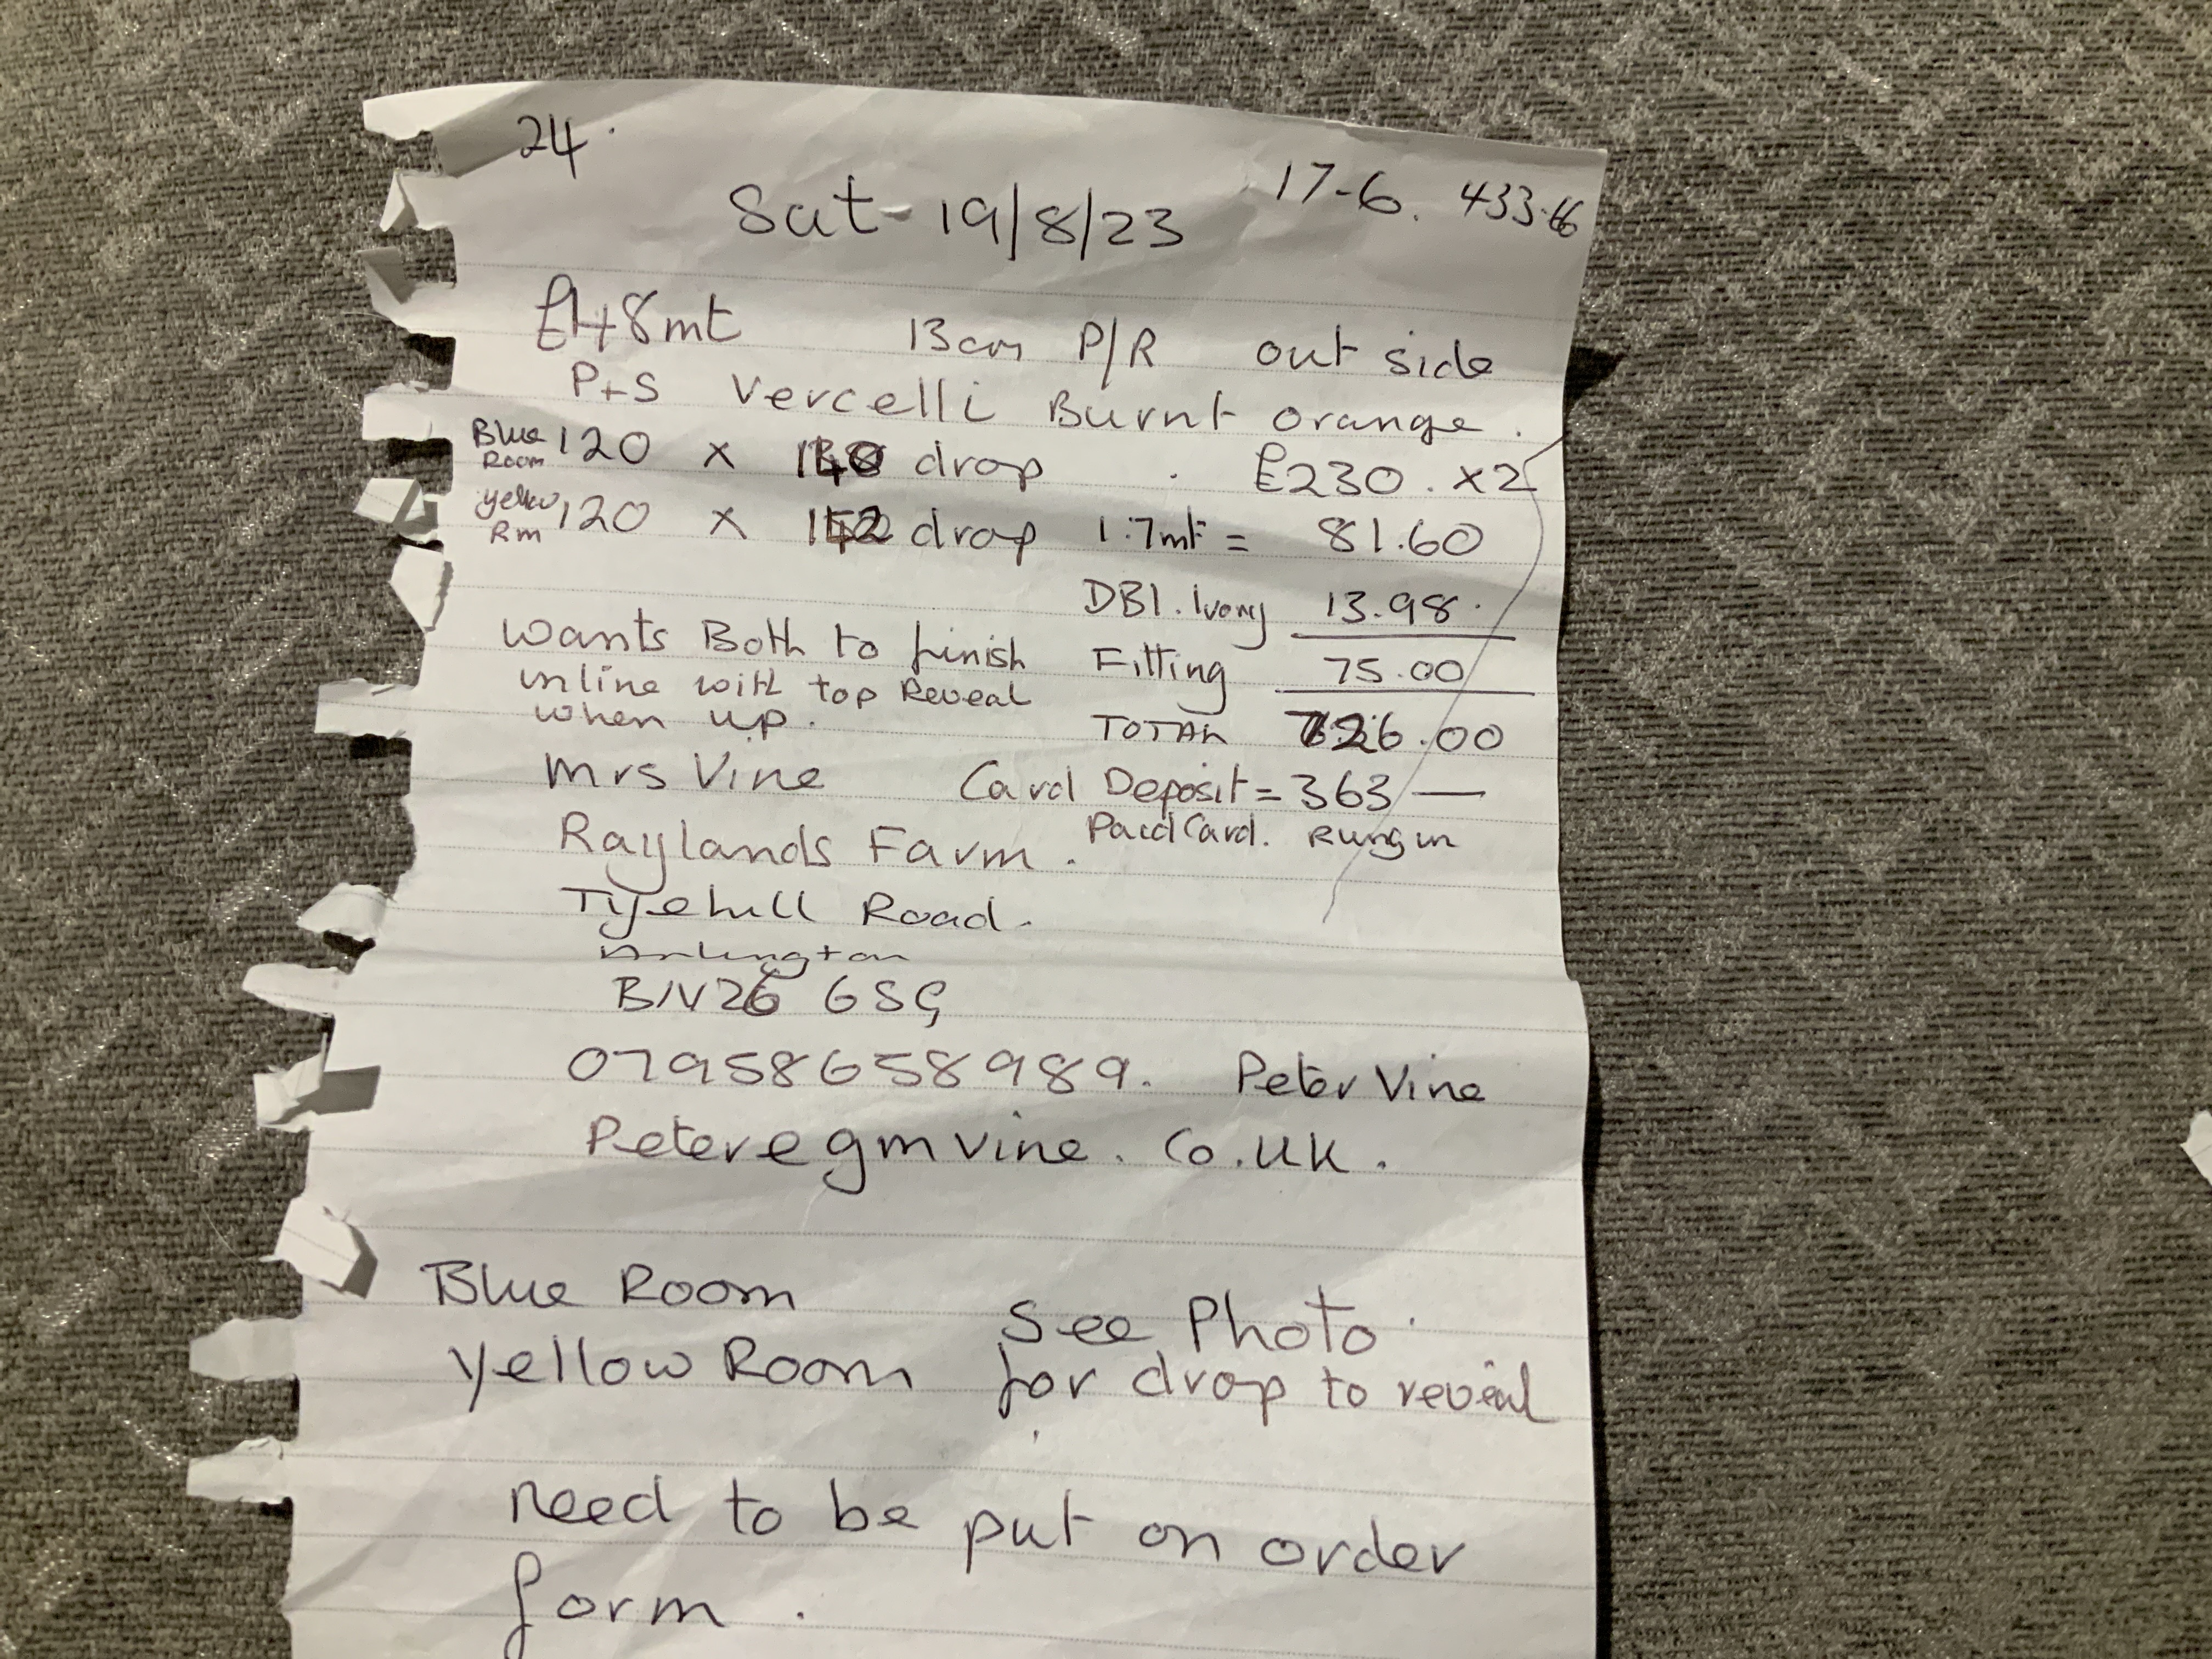 24.
17-6. 433.66
Sat- 19/8/23
£48mt 13cm P/R out side
P+S Vercelli Burnt orange.
Blue Room 120 x drop £230. x2
yellow Rm 120 x drop 1.7mt = 81.60
DBl. Ivory 13.98.
wants Both to finish Fitting 75.00
in line with top Reveal
when up. TOTAL 726.00
Mrs Vine Card Deposit = 363 —
Raylands Farm. Paid Card. Rung in
Tyehill Road.
Arlington
BN26 6SG
07958658989. Peter Vine
Peter@gmvine.co.uk.
Blue Room See Photo
yellow Room for drop to reveal
need to be put on order
form.